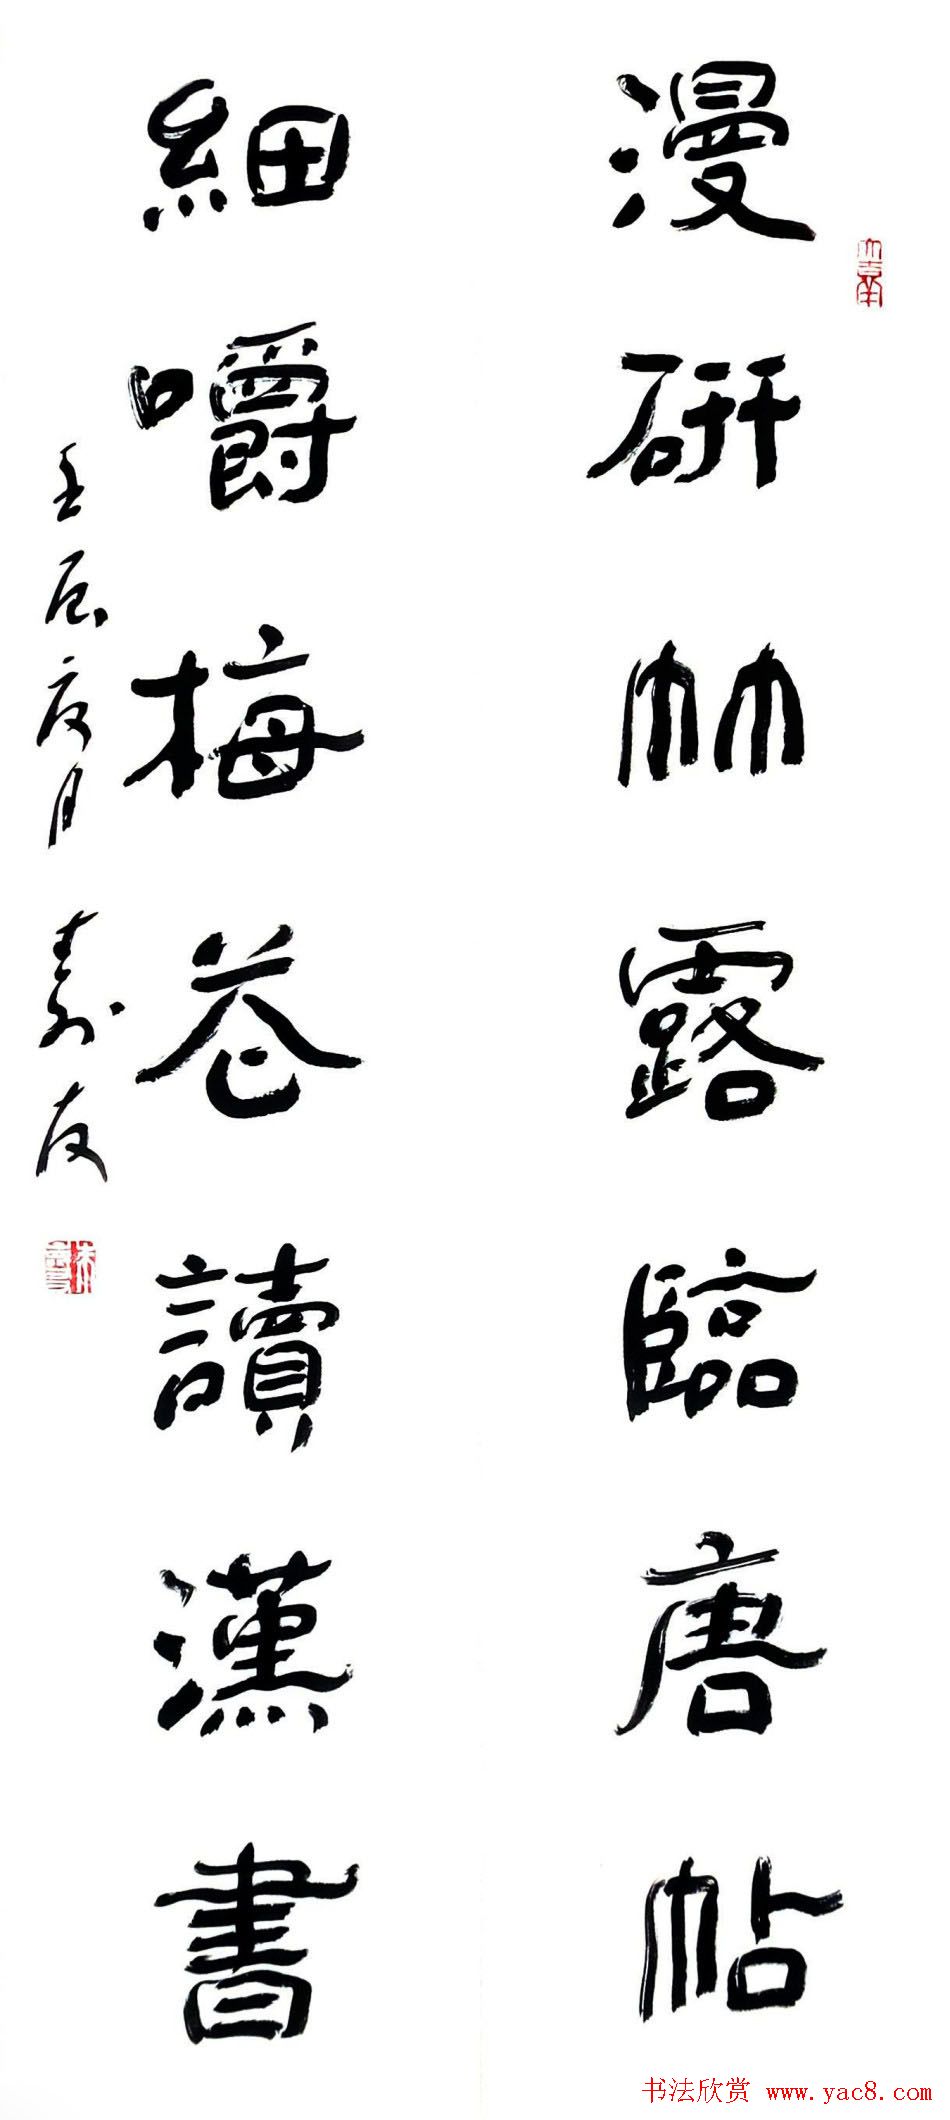 漫研竹露臨唐帖
大吉羊
細嚼梅花讀漢書
壬辰夏月 壽友
书法欣赏 www.yac8.com